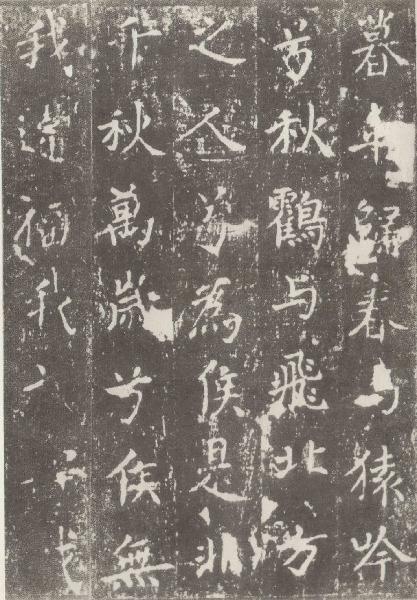 暮来歸春与猿吟
兮秋鶴与飛北方
之人兮為侯是非
千秋萬歲兮侯無
我違福我兮